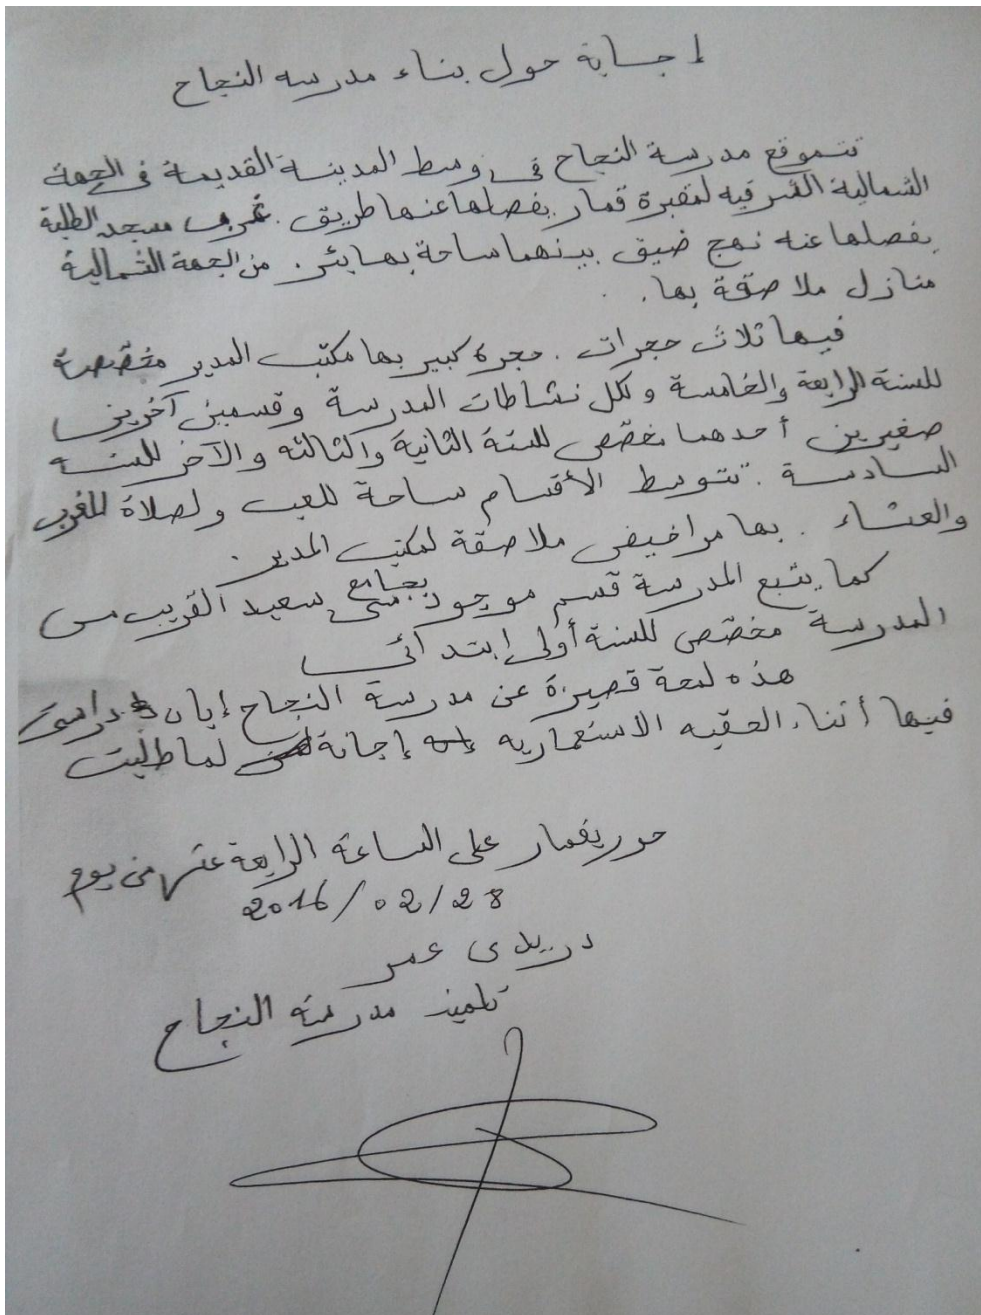 إجابة حول بناء مدرسة النجاح
تتموقع مدرسة النجاح في وسط المدينة القديمة في الجهة
الشمالية الشرقيه لمقبرة قمار يفصلها عنها طريق. غرب مسجد الطلبة
يفصلها عنه نهج ضيق بينهما ساحة بها بئر. من الجهة الشمالية
منازل ملاصقة بها.
فيها ثلاث حجرات. حجرة كبير بها مكتب المدير مخصصة
للسنة الرابعة والخامسة و لكل نشاطات المدرسة وقسمين آخرين
صغيرين أحدهما مخصص للسنة الثانية والثالثه والآخر للسنه
السادسة. تتوسط الأقسام ساحة للعب ولصلاة المغرب
والعشاء. بها مراحيض ملاصقة لمكتب المدير.
كما يتبع المدرسة قسم موجود بجامع سعيد القريب من
المدرسة مخصص للسنة أولى إبتدائي
هذه لمحة قصيرة عن مدرسة النجاح إبان دراستي
فيها أثناء الحقبه الاستعماريه إجابة لما طلبت
حرر بقمار على الساعة الرابعة عشر من يوم
2016/02/28
دريدي عمر
تلميذ مدرسة النجاح